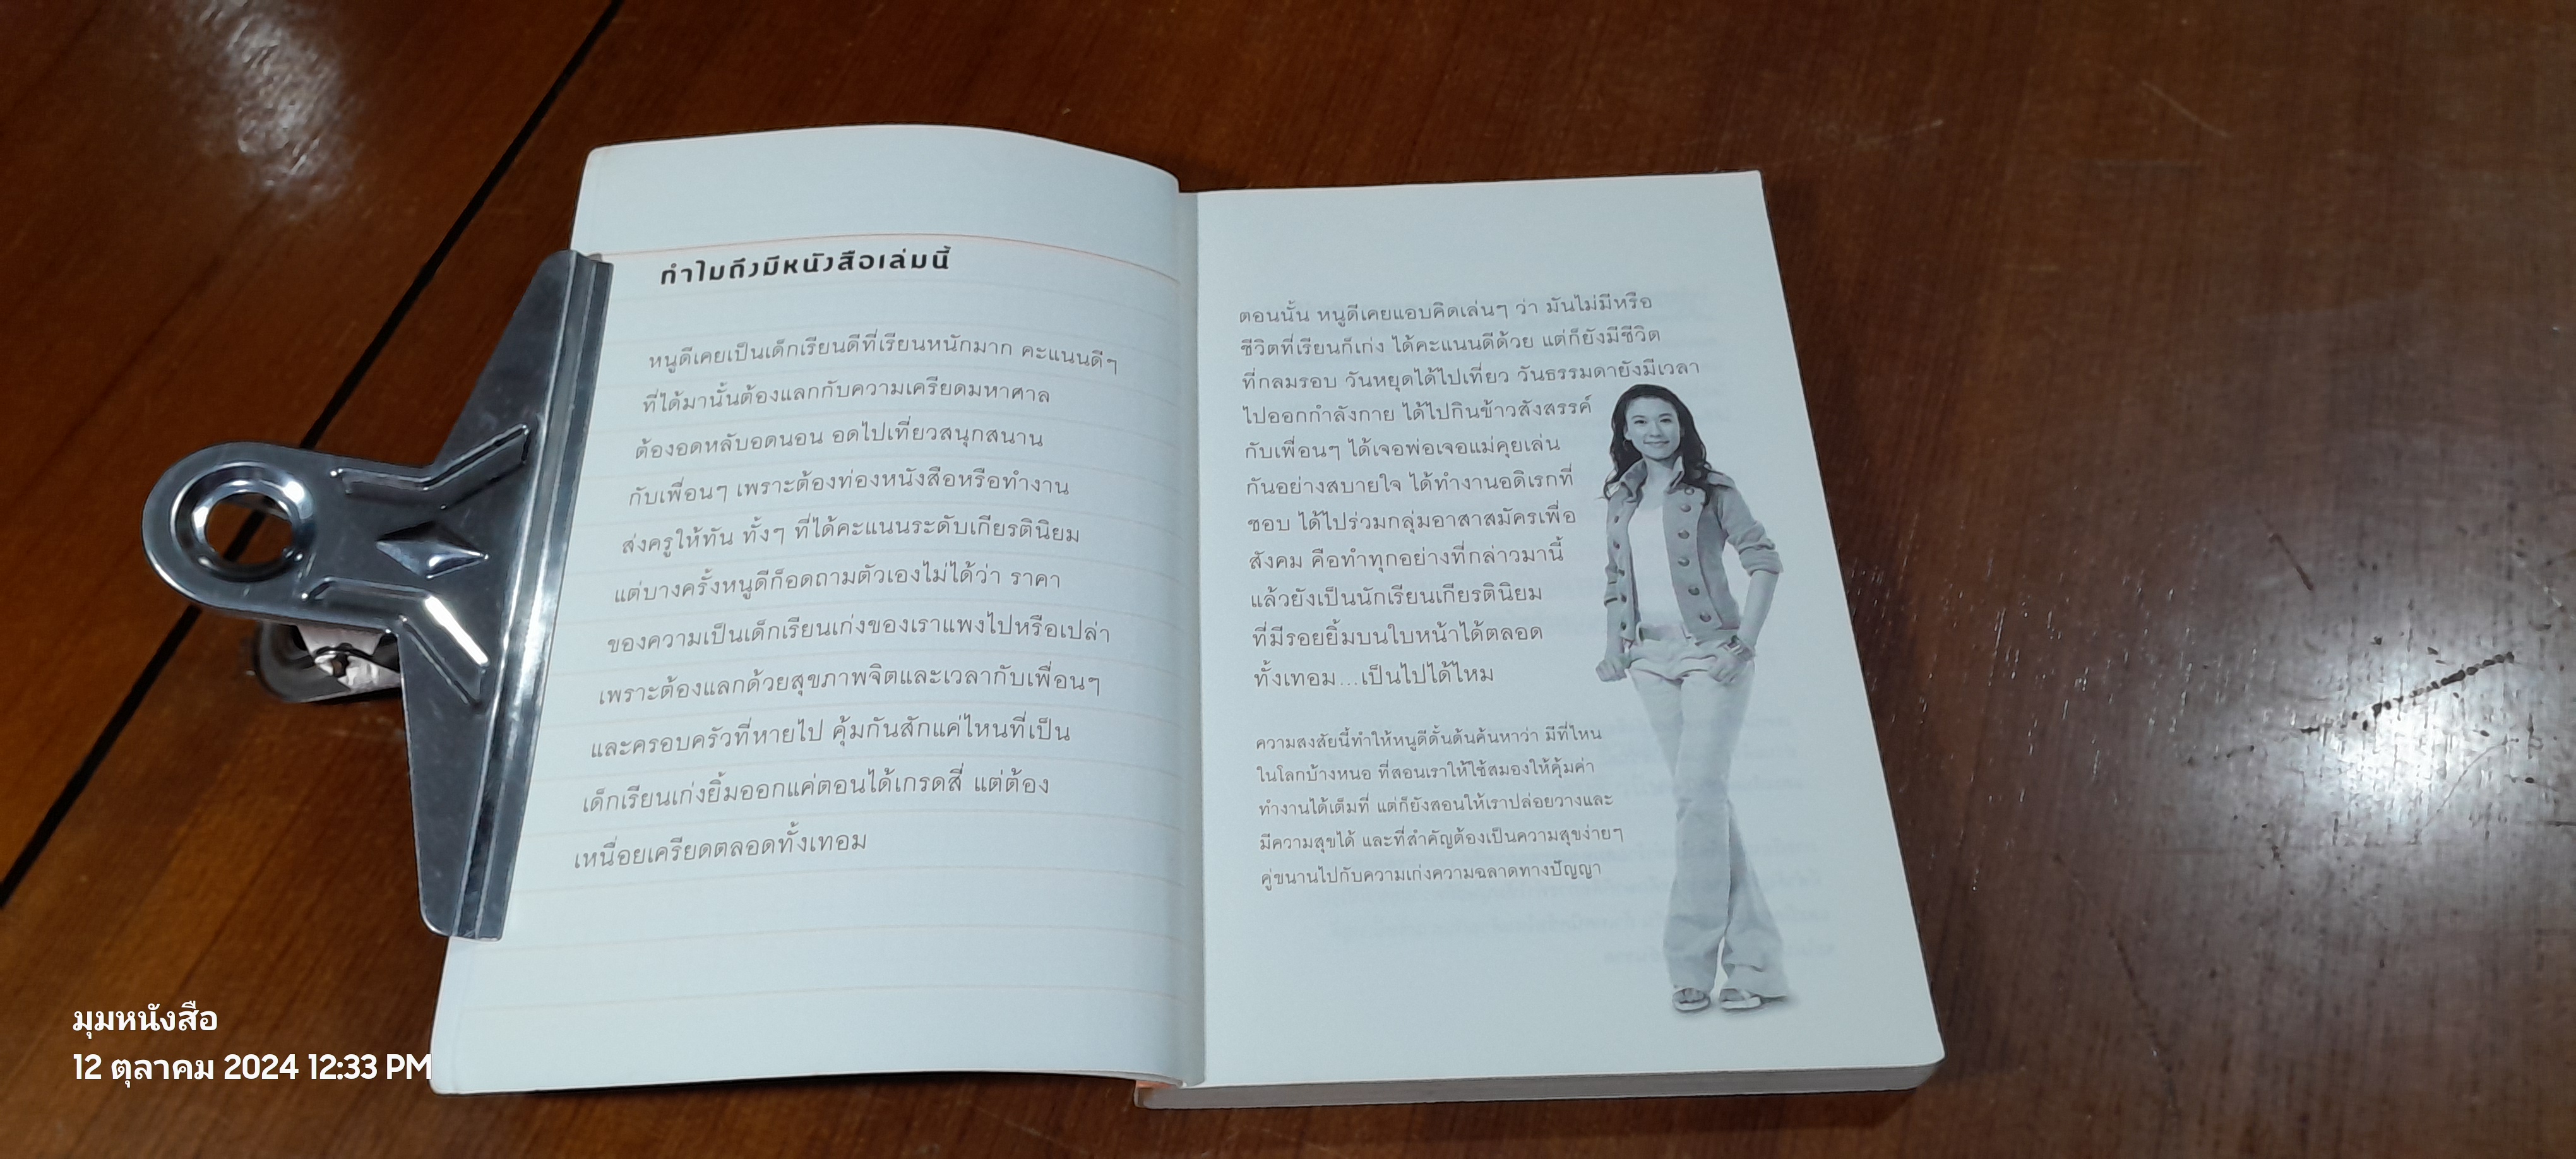 ทำไมถึงมีหนังสือเล่มนี้
หนูดีเคยเป็นเด็กเรียนดีที่เรียนหนักมาก คะแนนดีๆ
ที่ได้มานั้นต้องแลกกับความเครียดมหาศาล
ต้องอดหลับอดนอน อดไปเที่ยวสนุกสนาน
กับเพื่อนๆ เพราะต้องท่องหนังสือหรือทำงาน
ส่งครูให้ทัน ทั้งๆ ที่ได้คะแนนระดับเกียรตินิยม
แต่บางครั้งหนูดีก็อดถามตัวเองไม่ได้ว่า ราคา
ของความเป็นเด็กเรียนเก่งของเราแพงไปหรือเปล่า
เพราะต้องแลกด้วยสุขภาพจิตและเวลากับเพื่อนๆ
และครอบครัวที่หายไป คุ้มกันสักแค่ไหนที่เป็น
เด็กเรียนเก่งยิ้มออกแค่ตอนได้เกรดสี่ แต่ต้อง
เหนื่อยเครียดตลอดทั้งเทอม
ตอนนั้น หนูดีเคยแอบคิดเล่นๆ ว่า มันไม่มีหรือ
ชีวิตที่เรียนก็เก่ง ได้คะแนนดีด้วย แต่ก็ยังมีชีวิต
ที่กลมรอบ วันหยุดได้ไปเที่ยว วันธรรมดายังมีเวลา
ไปออกกำลังกาย ได้ไปกินข้าวสังสรรค์
กับเพื่อนๆ ได้เจอพ่อเจอแม่คุยเล่น
กันอย่างสบายใจ ได้ทำงานอดิเรกที่
ชอบ ได้ไปร่วมกลุ่มอาสาสมัครเพื่อ
สังคม คือทำทุกอย่างที่กล่าวมานี้
แล้วยังเป็นนักเรียนเกียรตินิยม
ที่มีรอยยิ้มบนใบหน้าได้ตลอด
ทั้งเทอม...เป็นไปได้ไหม
ความสงสัยนี้ทำให้หนูดีดั้นด้นค้นหาว่า มีที่ไหน
ในโลกบ้างหนอ ที่สอนเราให้ใช้สมองให้คุ้มค่า
ทำงานได้เต็มที่ แต่ก็ยังสอนให้เราปล่อยวางและ
มีความสุขได้ และที่สำคัญต้องเป็นความสุขง่ายๆ
คู่ขนานไปกับความเก่งความฉลาดทางปัญญา
มุมหนังสือ
12 ตุลาคม 2024 12:33 PM